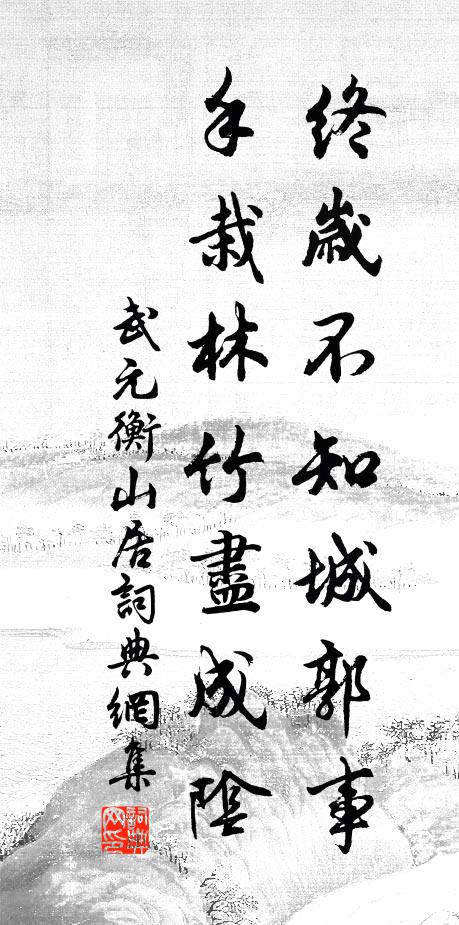 終歲不知城郭事
手栽林竹盡成陰
武元衡山居詞典網集